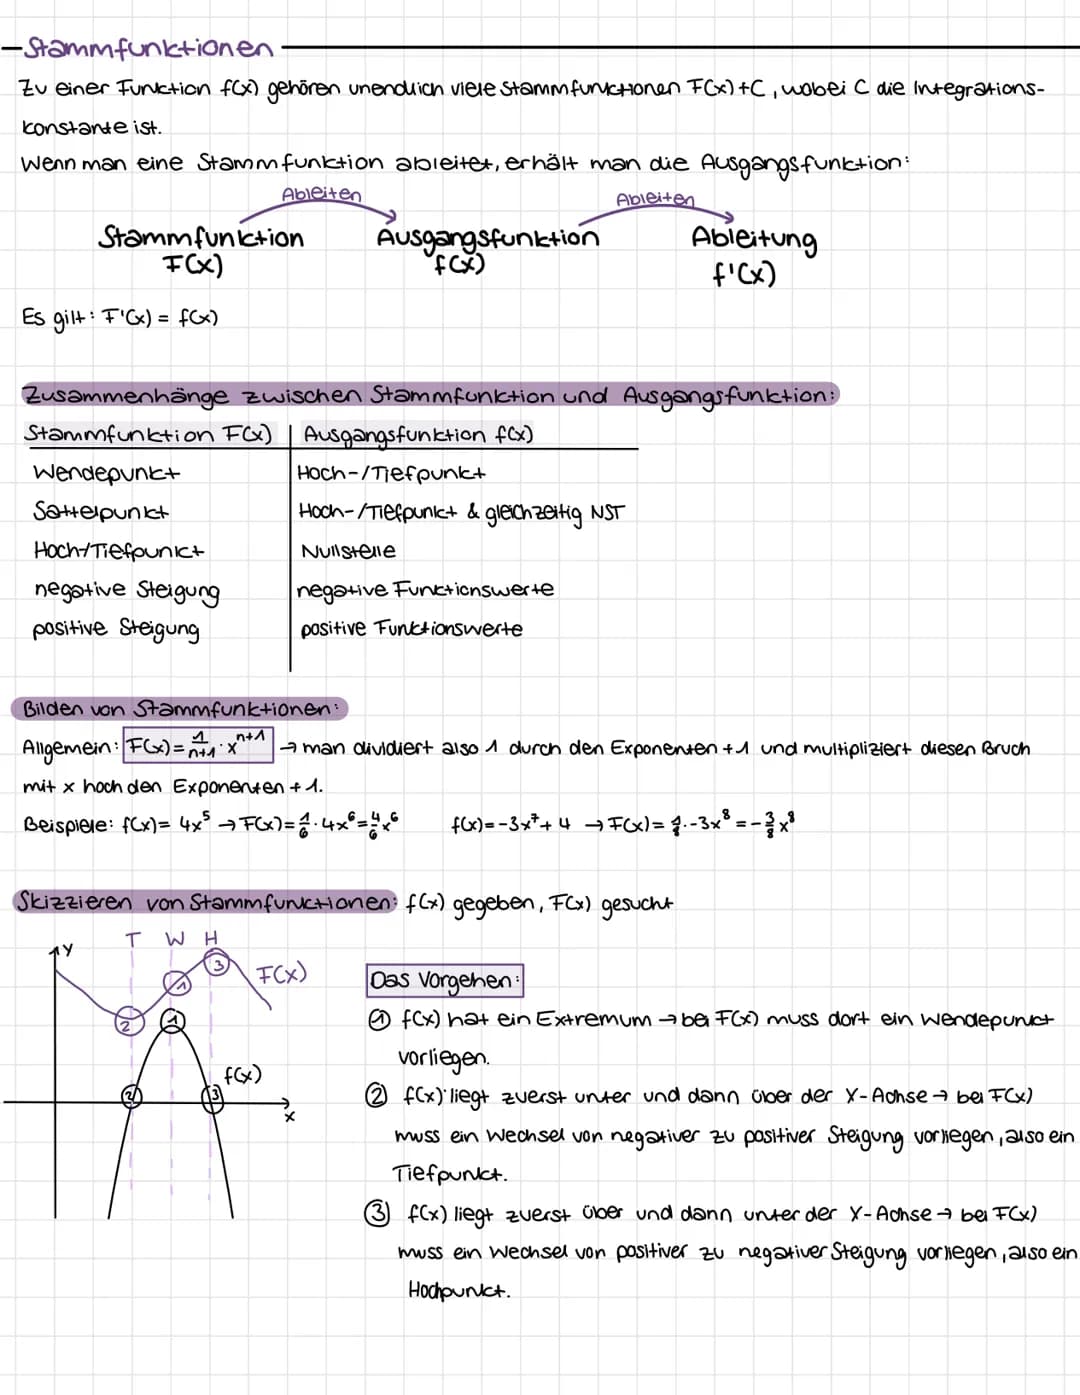 Stammfunktionen
Zu einer Funktion f(x) gehören unendlich viele Stammfunktionen F(x)+C, wobei C die Integrations-
konstante ist.
Wenn man eine Stammfunktion ableitet, erhält man die Ausgangsfunktion:
Ableiten Ableiten
Stammfunktion Ausgangsfunktion Ableitung
F(x) f(x) f'(x)
Es gilt: F'(x) = f(x)
Zusammenhänge zwischen Stammfunktion und Ausgangsfunktion:
Stammfunktion F(x) | Ausgangsfunktion f(x)
Wendepunkt Hoch-/Tiefpunkt
Sattelpunkt Hoch-/Tiefpunkt & gleichzeitig NST
Hoch-/Tiefpunkt Nullstelle
negative Steigung negative Funktionswerte
positive Steigung positive Funktionswerte
Bilden von Stammfunktionen:
Allgemein: F(x) = 1/(n+1) · x^(n+1) → man dividiert also 1 durch den Exponenten +1 und multipliziert diesen Bruch
mit x hoch den Exponenten +1.
Beispiele: f(x) = 4x⁵ → F(x) = 1/6 · 4x⁶ = 4/6 x⁶ f(x) = -3x⁷ + 4 → F(x) = 1/8 · -3x⁸ = -3/8 x⁸
Skizzieren von Stammfunktionen: f(x) gegeben, F(x) gesucht
T W H
y
3
F(x)
1
2 1
f(x)
2 3
x
Das Vorgehen:
① f(x) hat ein Extremum → bei F(x) muss dort ein Wendepunkt
vorliegen.
② f(x) liegt zuerst unter und dann über der X-Achse → bei F(x)
muss ein Wechsel von negativer zu positiver Steigung vorliegen, also ein
Tiefpunkt.
③ f(x) liegt zuerst über und dann unter der X-Achse → bei F(x)
muss ein Wechsel von positiver zu negativer Steigung vorliegen, also ein
Hochpunkt.